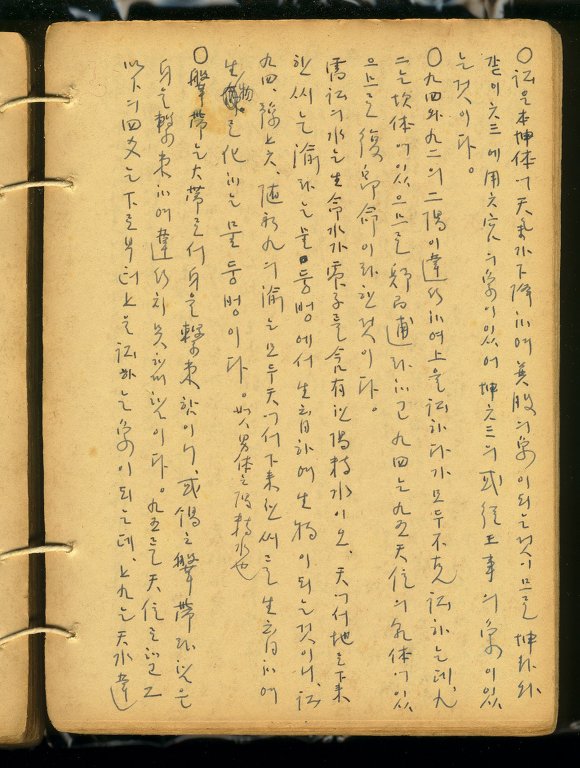 ○訟은本坤体에天氣가下降하여莫股의象이되는것이므로坤卦와
같이六三에用六 의象이있어坤六三의或從王事의象이있
는것이다。
○九四와九二의二陽이違行하여上을訟하다가모두不克訟하는데、九
二는坎体에있으므로歸而逋라하고九四는九五天位의乾体에있
으므로復卽命이라한것이다。
需訟의水는生命水가 子를含有한陽精水이요、天에서地로下來
한씨는渝라는물둥벙에서生育하여生物이되는것이니、訟
九四、豫上六、随初九의渝는모두天에서下來한씨를生育하여
生物로化하는물둥벙이다。如男体之陽精水也
○鞶帶는大帶로서身을鞶束함이니、或錫之鞶帶라함은
身을鞶束하여違行치못하게함이다。九五를天位로하고그
以下의四爻는下로부터上을訟하는象이되는데、上九는天水違